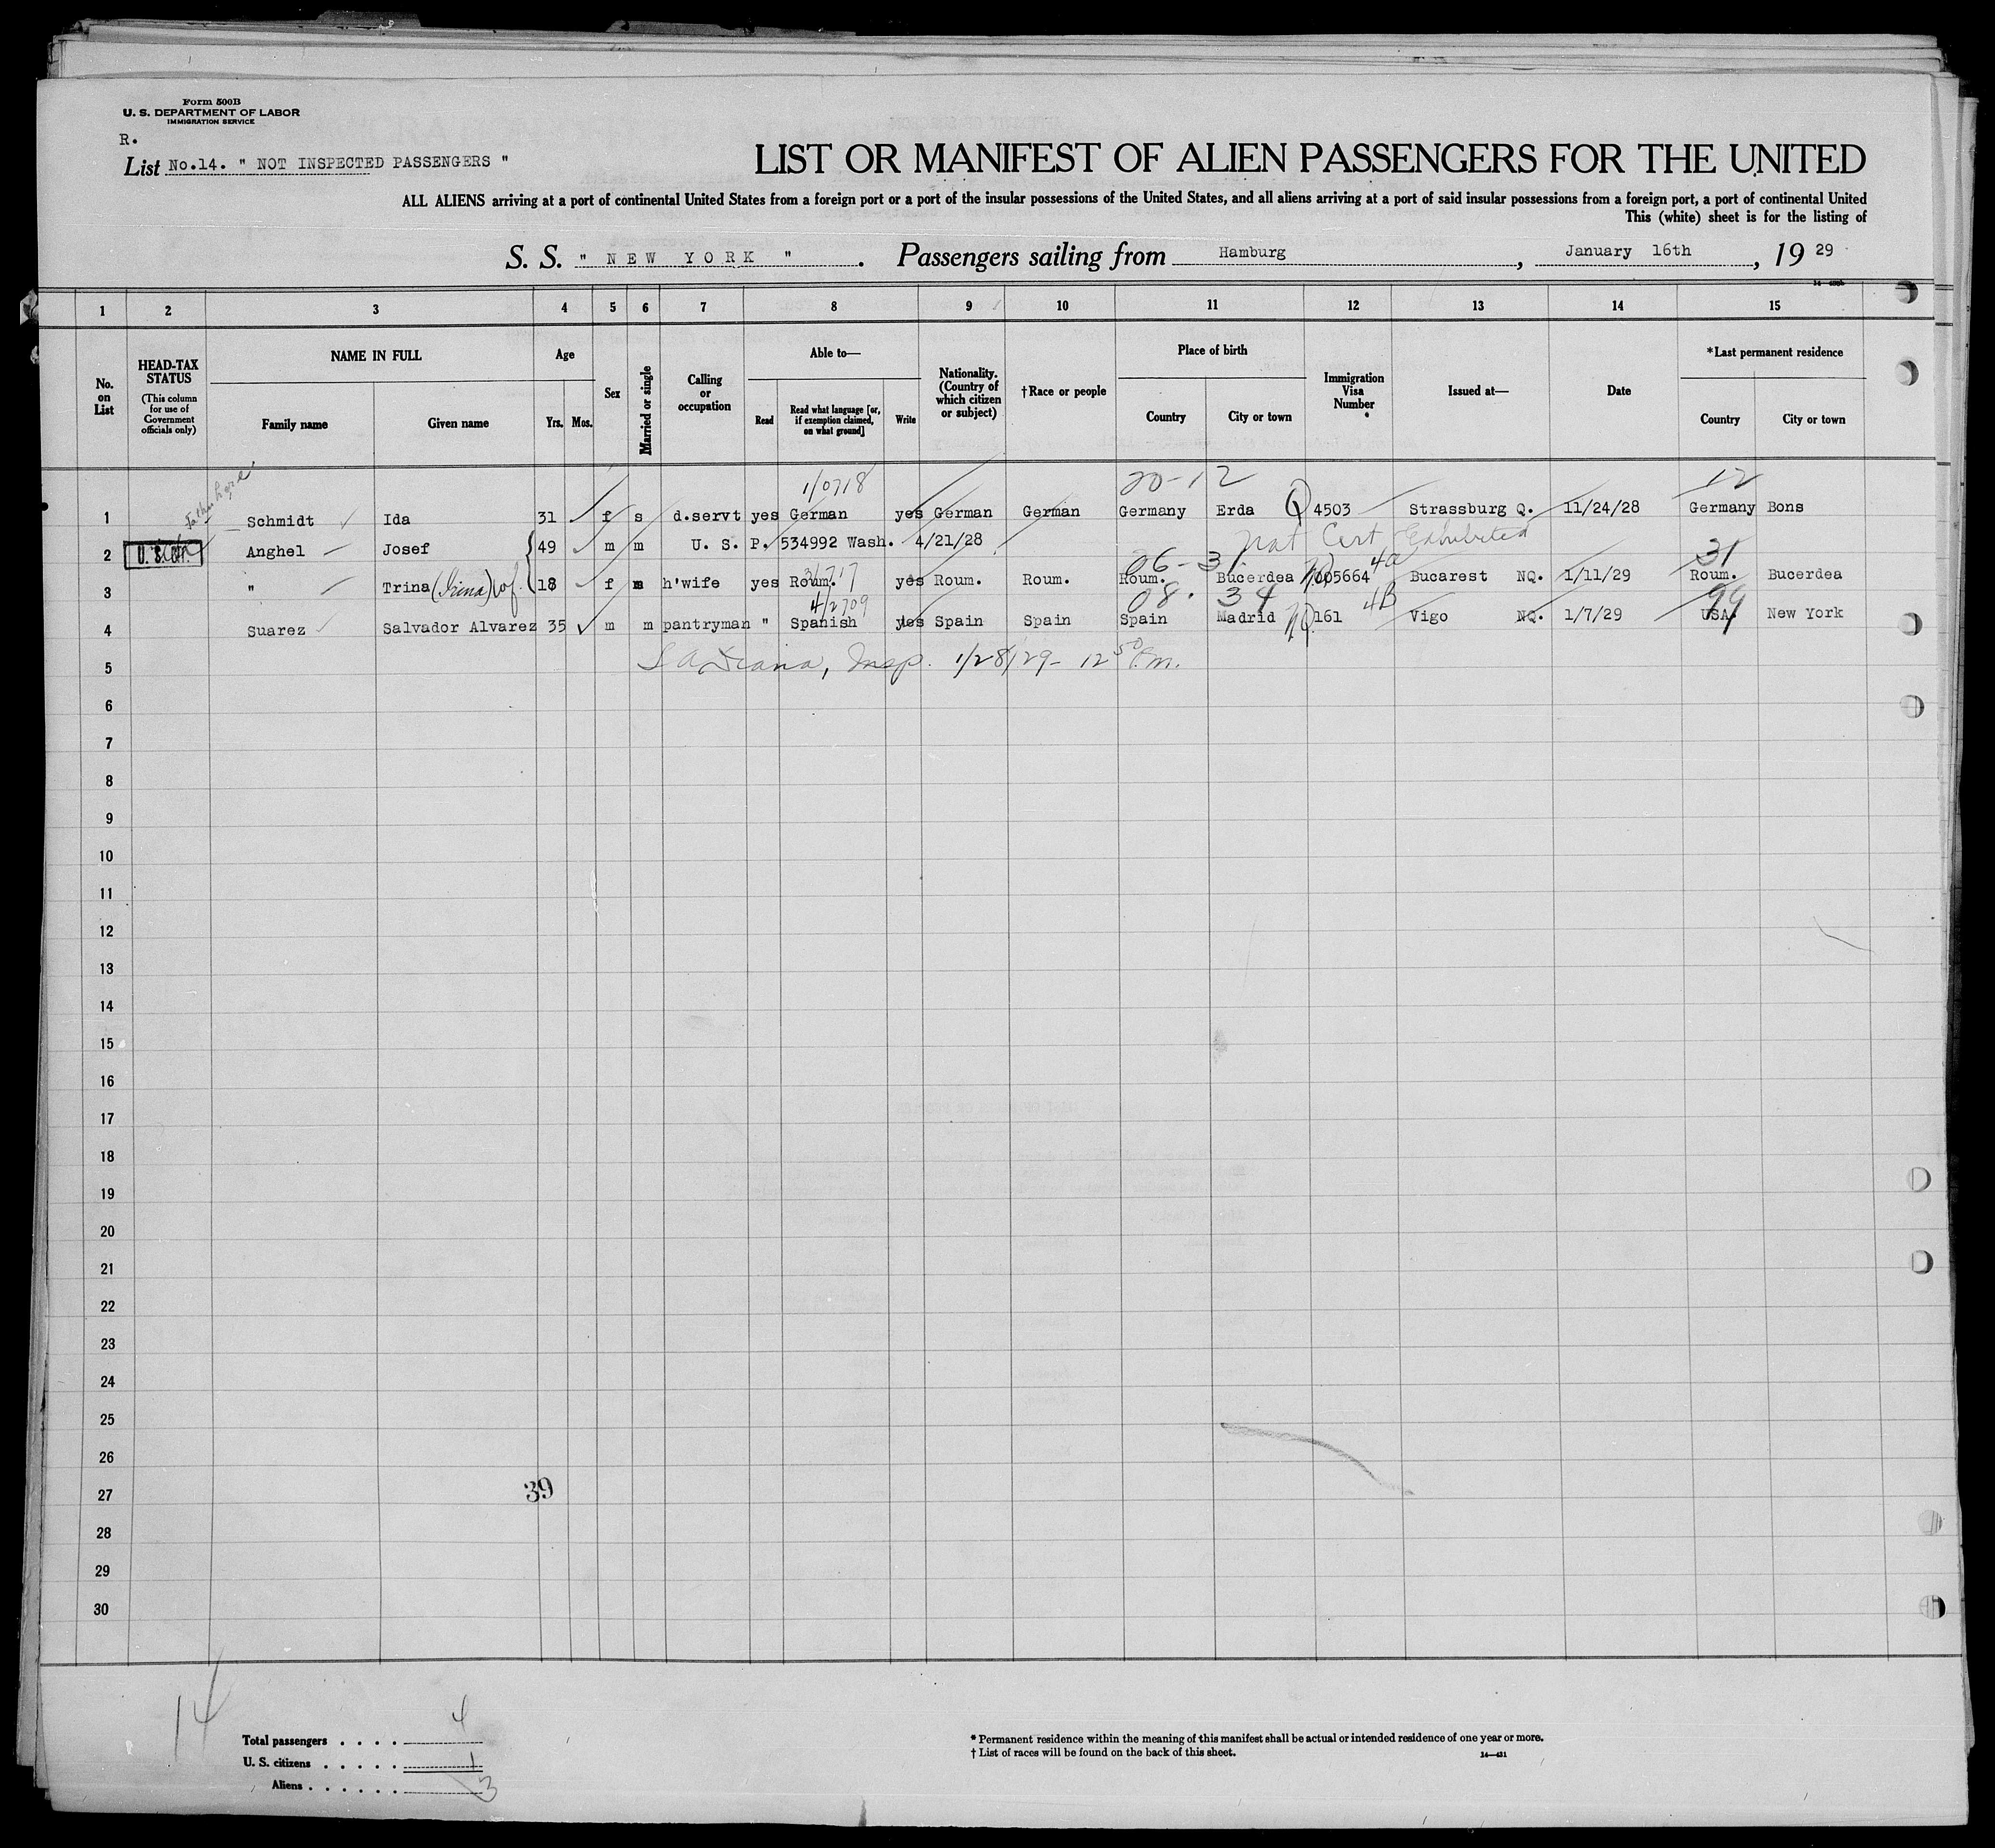 Form 500B
U. S. DEPARTMENT OF LABOR
IMMIGRATION SERVICE
R.
List No.14. " NOT INSPECTED PASSENGERS "
LIST OR MANIFEST OF ALIEN PASSENGERS FOR THE UNITED
ALL ALIENS arriving at a port of continental United States from a foreign port or a port of the insular possessions of the United States, and all aliens arriving at a port of said insular possessions from a foreign port, a port of continental United
This (white) sheet is for the listing of
S. S. " NEW YORK " . Passengers sailing from Hamburg , January 16th , 19 29
1 2 3 4 5 6 7 8 9 10 11 12 13 14 15
No. on List
HEAD-TAX STATUS
(This column for use of Government officials only)
NAME IN FULL
Family name Given name
Age
Yrs. Mos.
Sex
Married or single
Calling or occupation
Able to—
Read Read what language [or, if exemption claimed, on what ground] Write
Nationality. (Country of which citizen or subject)
†Race or people
Place of birth
Country City or town
Immigration Visa Number
Issued at—
Date
*Last permanent residence
Country City or town
1/0718 20-12 12
1 Schmidt Ida 31 f s d.servt yes German yes German German Germany Erda Q 4503 Strassburg Q. 11/24/28 Germany Bons
2 Anghel Josef 49 m m U. S. P. 534992 Wash. 4/21/28 Nat Cert Exhibited
06-31 4a 31
3 " Trina (Irina) wf. 18 f m h'wife yes Roum. yes Roum. Roum. Roum. Bucerdea 005664 Bucarest NQ. 1/11/29 Roum. Bucerdea
4/2709 08. 34 4B 99
4 Suarez Salvador Alvarez 35 m m pantryman " Spanish yes Spain Spain Spain Madrid 161 Vigo NQ. 1/7/29 USA. New York
5 Insp. 1/28/29- 12 50 P.m.
6
7
8
9
10
11
12
13
14
15
16
17
18
19
20
21
22
23
24
25
26
27 39
28
29
30
14
Total passengers . . . . 4
U. S. citizens . . . . . 1
Aliens . . . . . . 3
* Permanent residence within the meaning of this manifest shall be actual or intended residence of one year or more.
† List of races will be found on the back of this sheet.